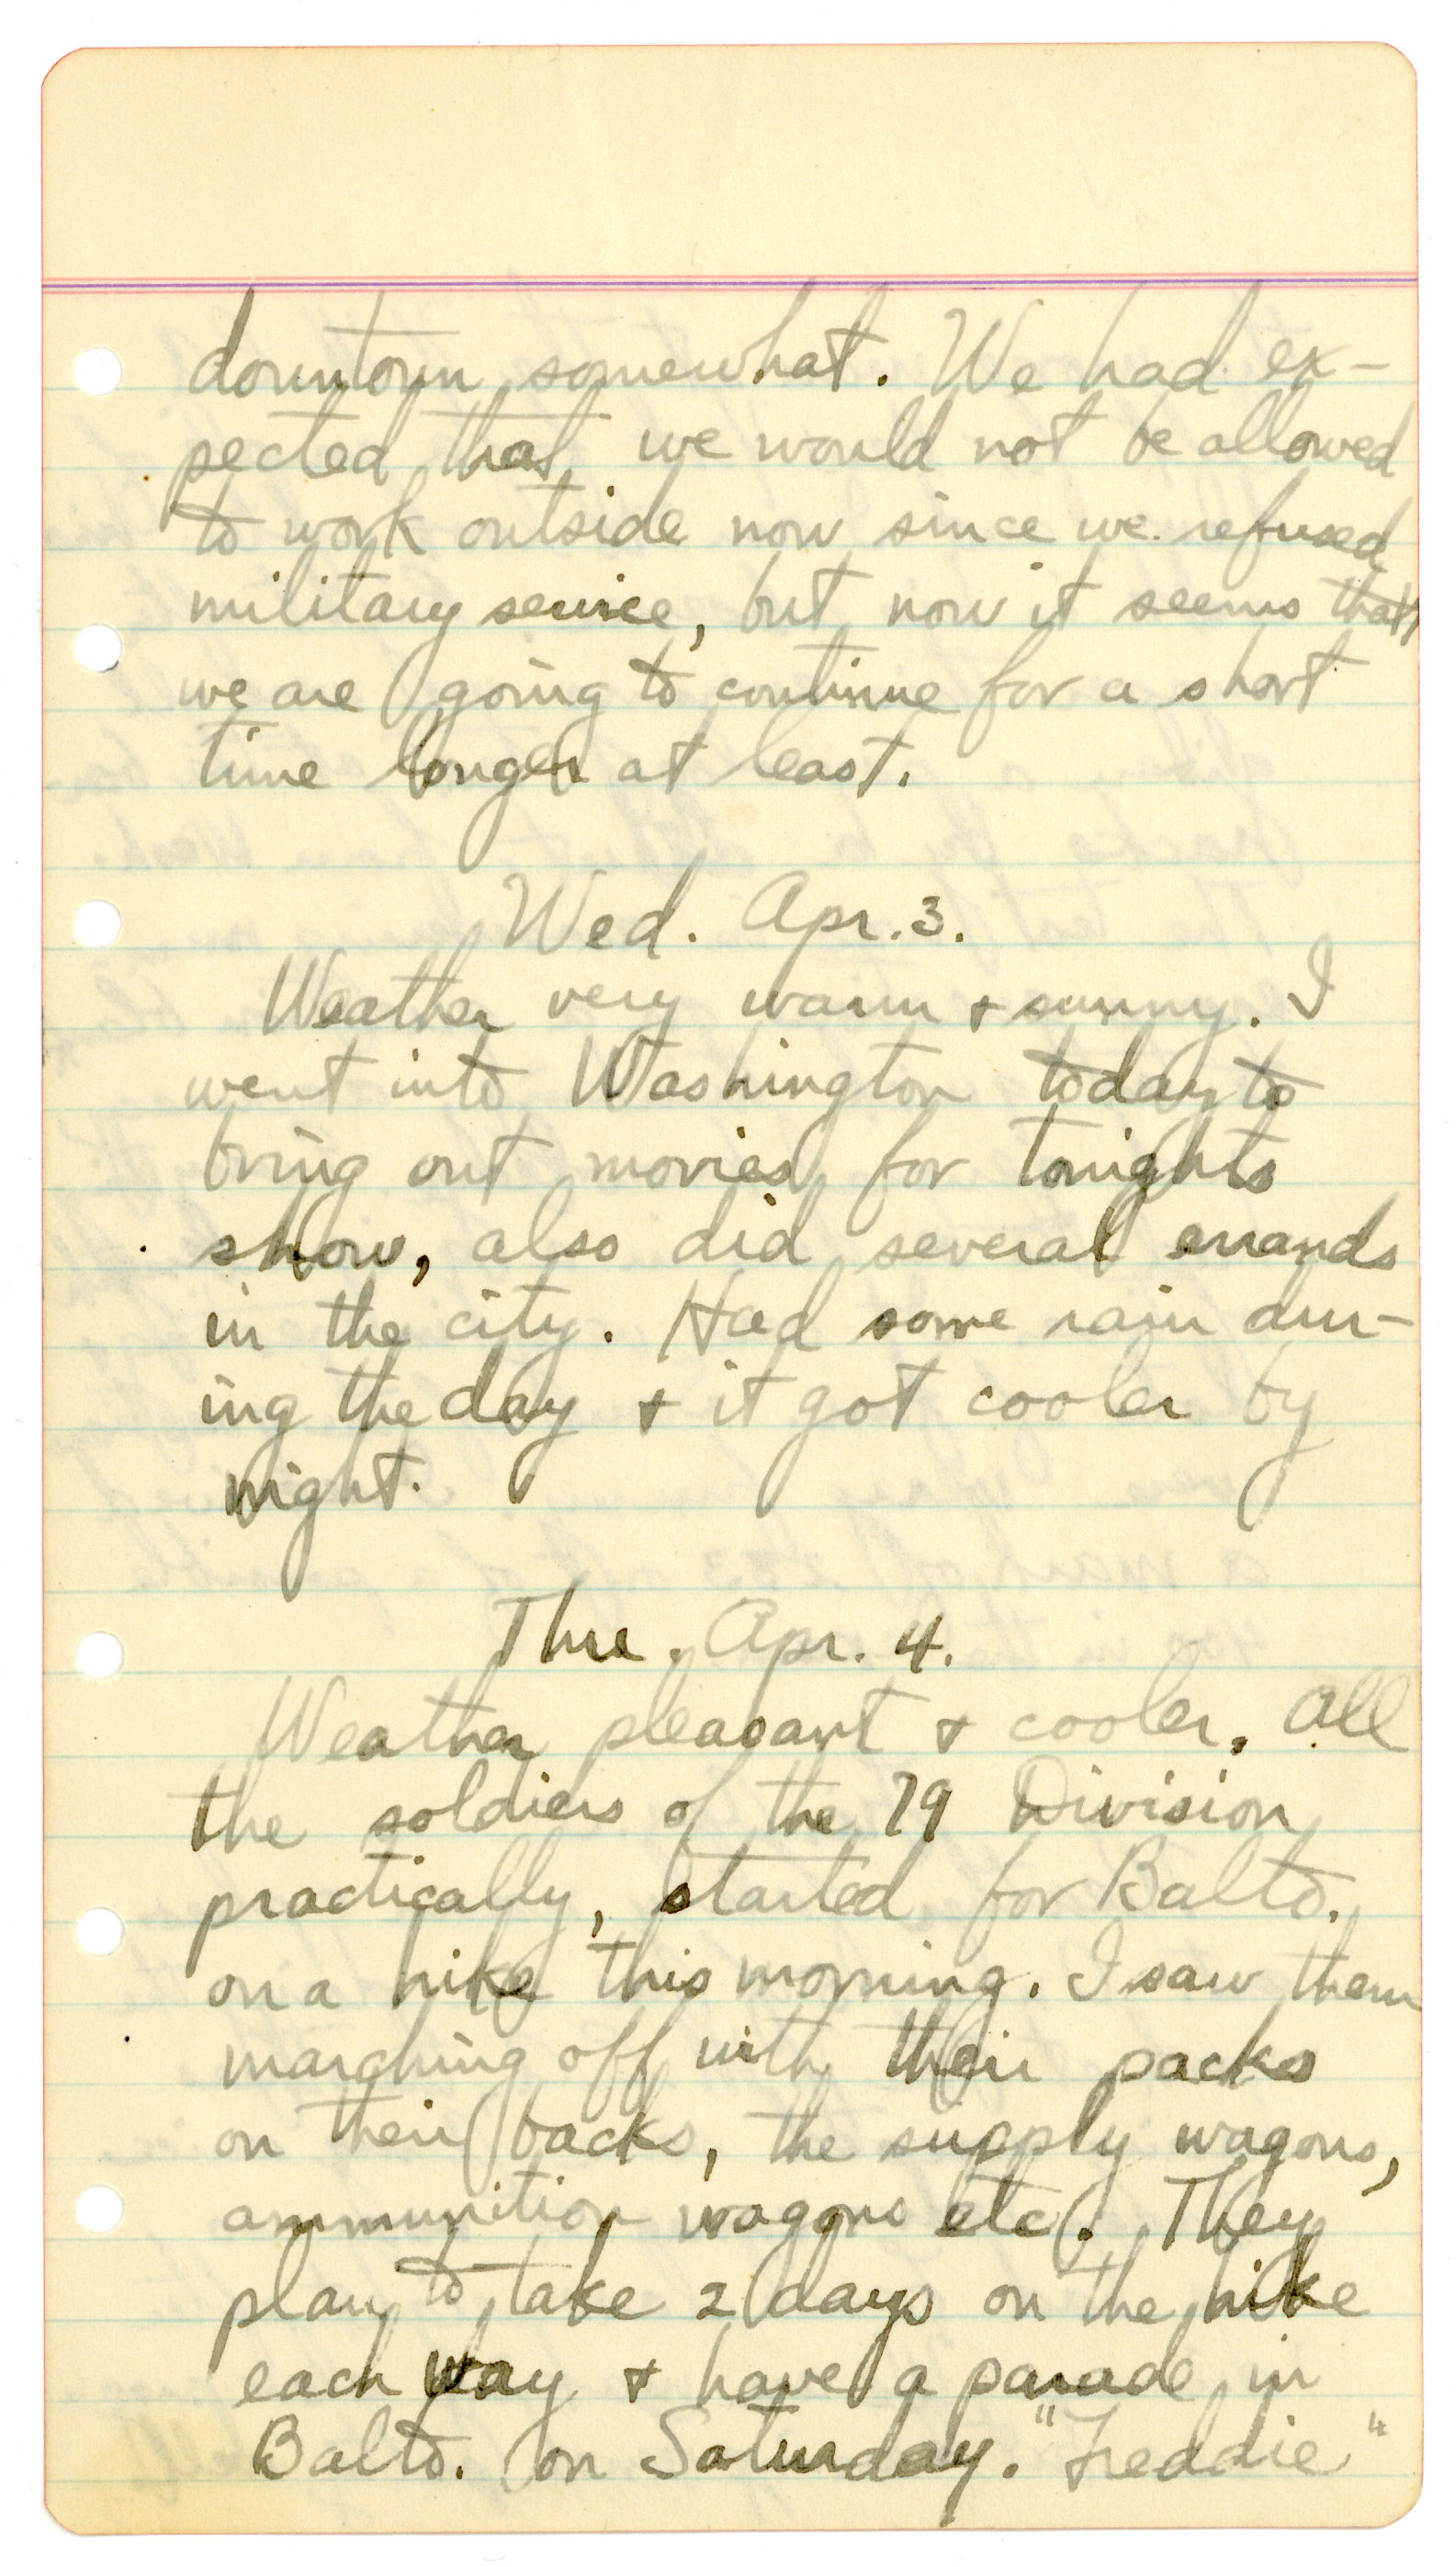 downtown somewhat. We had ex-
pected that we would not be allowed
to work outside now since we refused
military service, but now it seems that
we are going to continue for a short
time longer at least.
Wed. Apr. 3.
Weather very warm + sunny. I
went into Washington today to
bring out movies for tonights
show, also did several errands
in the city. Had some rain dur-
ing the day + it got cooler by
night.
Thu. Apr. 4.
Weather pleasant + cooler. All
the soldiers of the 79 Division
practically, started for Balto.
on a hike this morning. I saw them
marching off with their packs
on their backs, the supply wagons,
ammunition wagons etc. They
plan to take 2 days on the hike
each way + have a parade in
Balto. on Saturday. "Freddie"